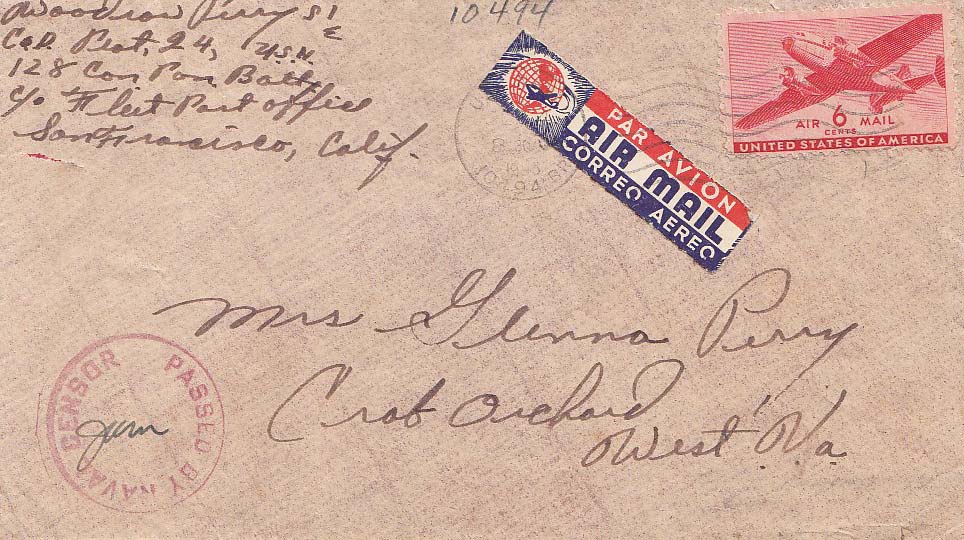 Woodrow Perry S1c
Co D. Plat. 24, U.S.N.
128 Con Pon Batt,
c/o Fleet Post office
San Francisco, Calif.
10494
PAR AVION
AIR MAIL
CORREO AEREO
AIR 6 MAIL
CENTS
UNITED STATES OF AMERICA
Mrs Glenna Perry
Crab Orchard
West. Va.
PASSED BY NAVAL CENSOR